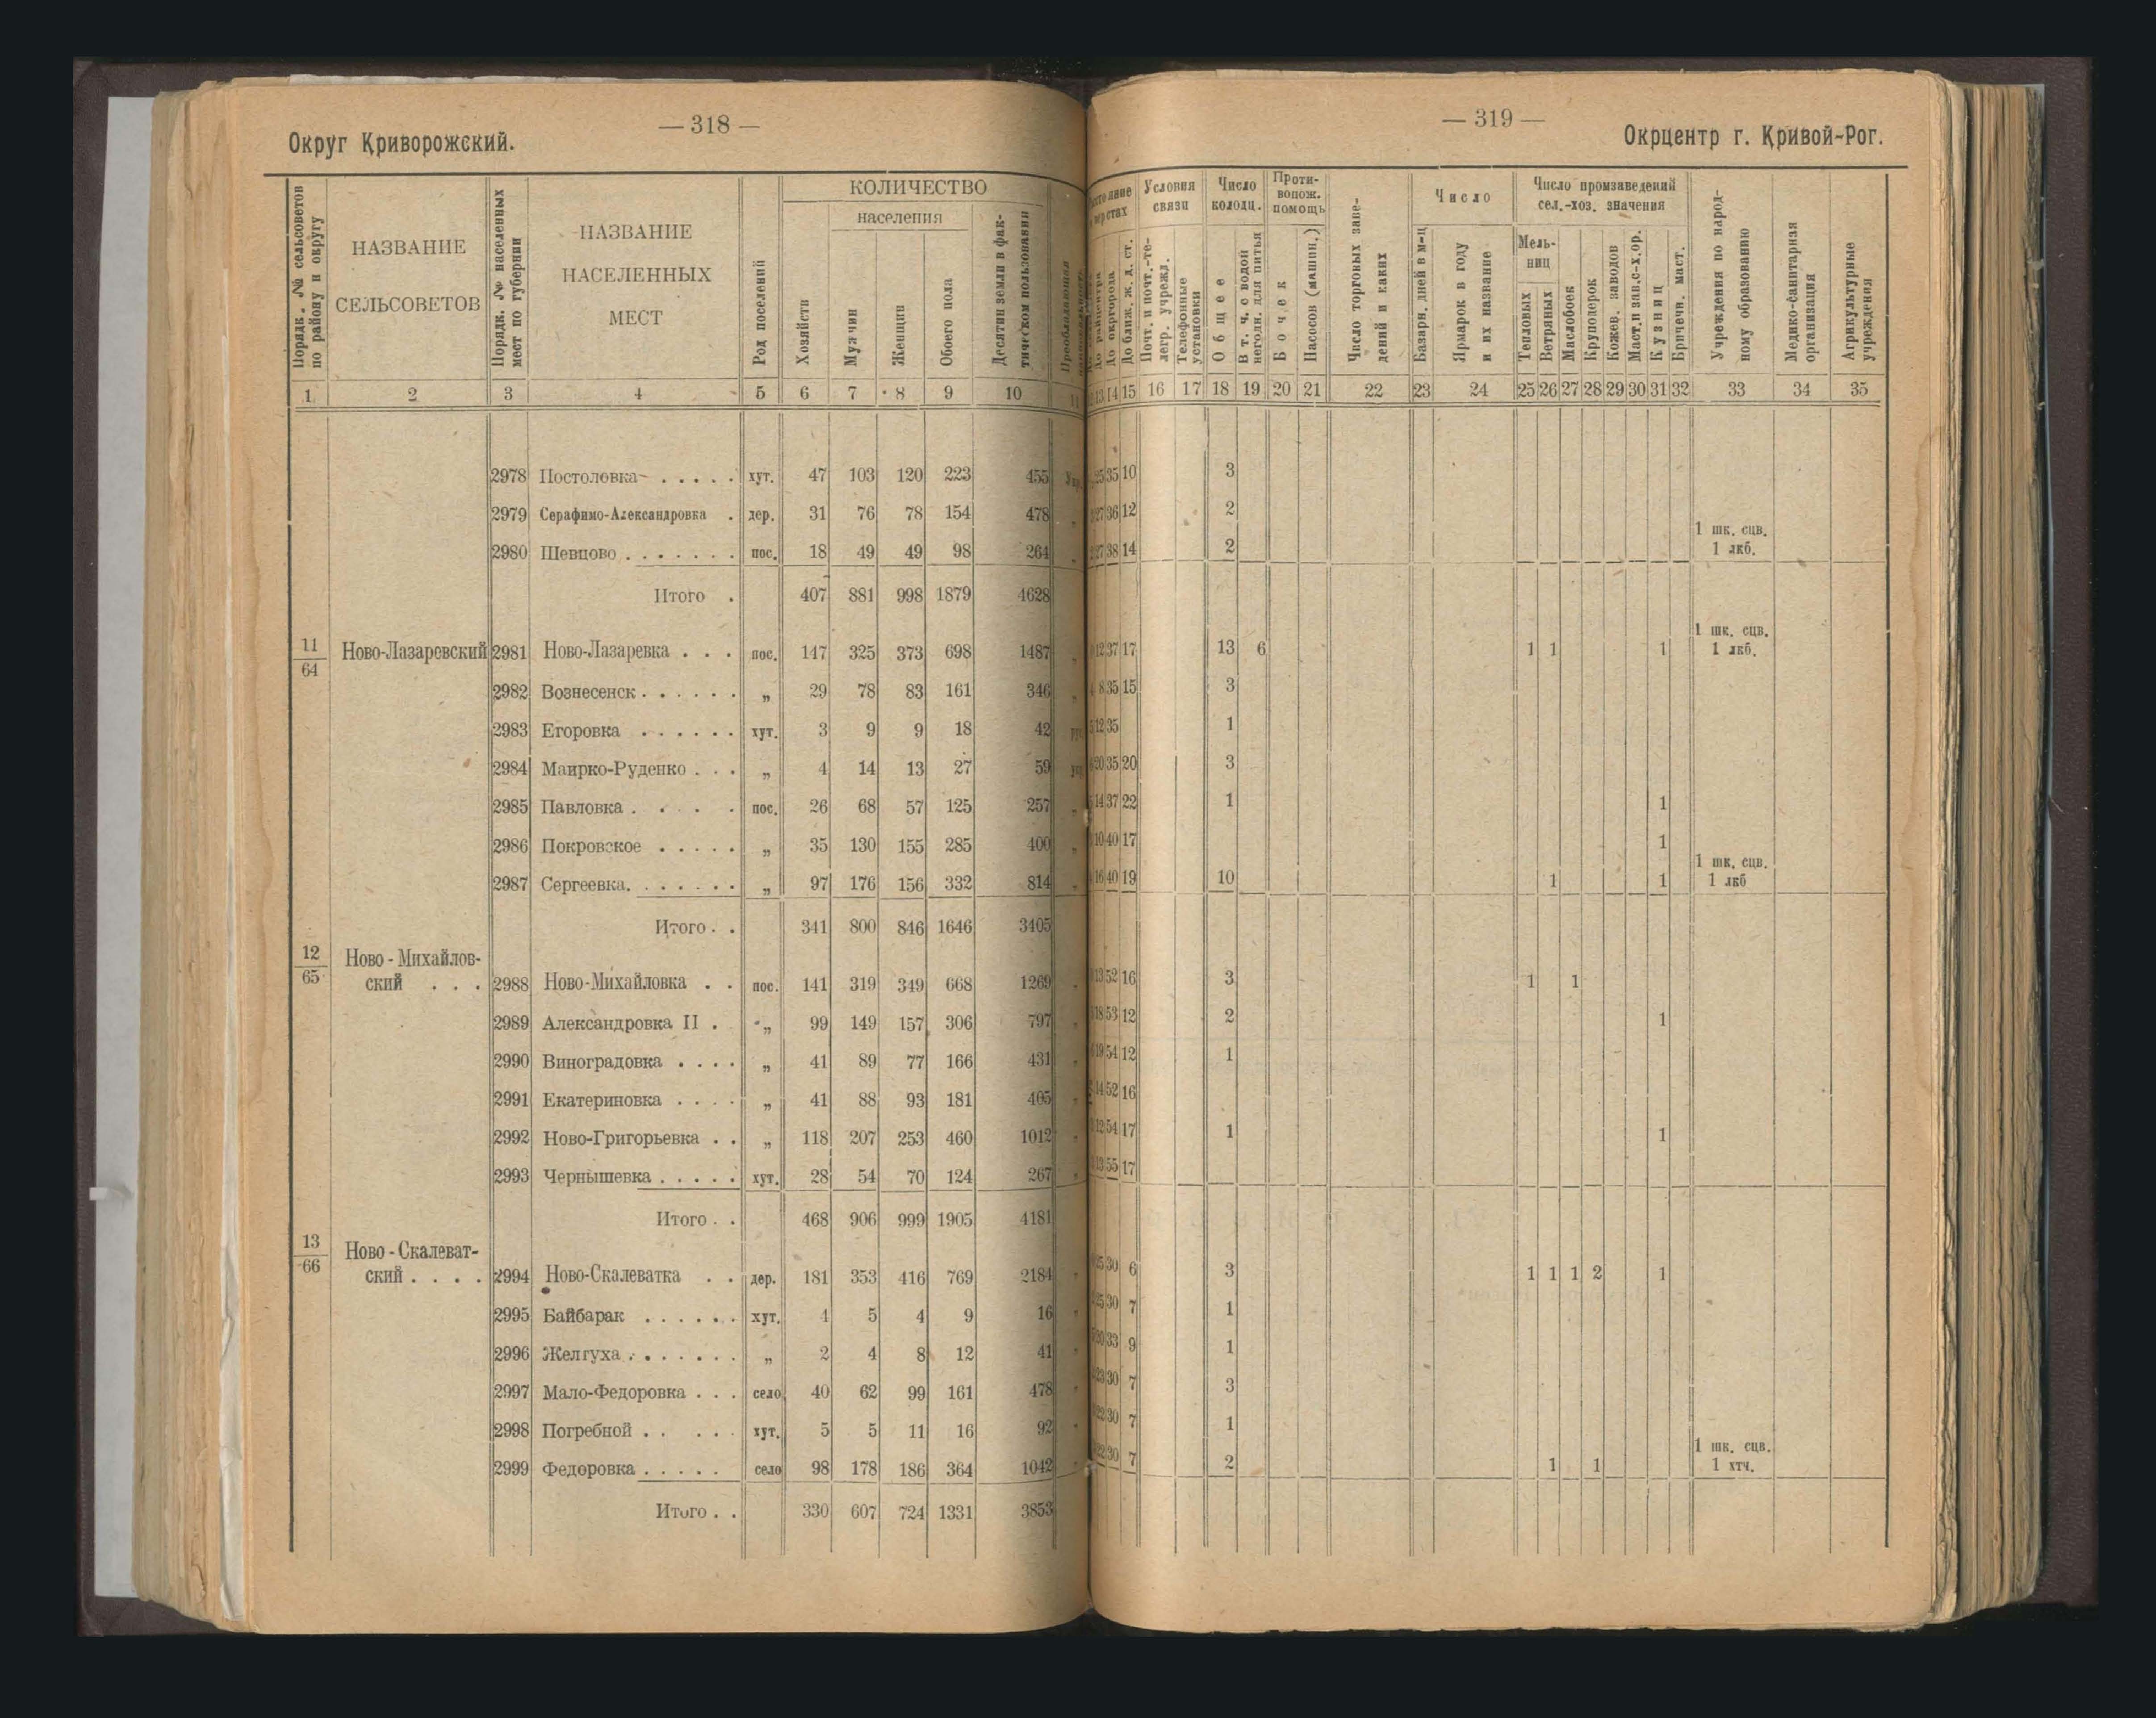 — 318 —
Округ Криворожский.
Порядк. № сельсоветов по району и округу
НАЗВАНИЕ СЕЛЬСОВЕТОВ
Порядк. № населенных мест по губернии
НАЗВАНИЕ НАСЕЛЕННЫХ МЕСТ
Род поселений
КОЛИЧЕСТВО
Хозяйств
населения
Мужчин
Женщин
Обоего пола
Десятин земли в фактическом пользовании
Преобладающая
1 2 3 4 5 6 7 8 9 10 11
2978 Постоловка . . . . . хут. 47 103 120 223 455 Укр.
2979 Серафимо-Александровка . дер. 31 76 78 154 478 „
2980 Шевцово . . . . . . . пос. 18 49 49 98 264 „
Итого . 407 881 998 1879 4628
11/64 Ново-Лазаревский 2981 Ново-Лазаревка . . . пос. 147 325 373 698 1487 „
2982 Вознесенск . . . . . . „ 29 78 83 161 346 „
2983 Егоровка . . . . . . хут. 3 9 9 18 42
2984 Маирко-Руденко . . . „ 4 14 13 27 59 укр
2985 Павловка . . . . . пос. 26 68 57 125 257 „
2986 Покровское . . . . . „ 35 130 155 285 400 „
2987 Сергеевка. . . . . . . „ 97 176 156 332 814 „
Итого . . 341 800 846 1646 3405
12/65 Ново - Михайлов-
ский . . . 2988 Ново-Михайловка . . пос. 141 319 349 668 1269 „
2989 Александровка II . „ 99 149 157 306 797 „
2990 Виноградовка . . . . „ 41 89 77 166 431 „
2991 Екатериновка . . . . „ 41 88 93 181 405 „
2992 Ново-Григорьевка . . „ 118 207 253 460 1012 „
2993 Чернышевка . . . . . хут. 28 54 70 124 267 „
Итого . . 468 906 999 1905 4181
13/66 Ново - Скалеват-
ский . . . . 2994 Ново-Скалеватка . . дер. 181 353 416 769 2184 „
2995 Байбарак . . . . . . хут. 4 5 4 9 16 „
2996 Желтуха . . . . . . . „ 2 4 8 12 41 „
2997 Мало-Федоровка . . . село 40 62 99 161 478 „
2998 Погребной . . . . . хут. 5 5 11 16 92 „
2999 Федоровка . . . . . село 98 178 186 364 1042 „
Итого . . 330 607 724 1331 3853
— 319 —
Окрцентр г. Кривой-Рог.
До райцентра
До окргорода
До ближ. ж. д. ст.
Условия связи
Почт. и почт.-телегр. учрежд.
Телефонные установки
Число колодц.
Общее
В т. ч. с водой негодн. для питья
Противопож. помощь
Бочек
Насосов (машин.)
Число торговых заведений и каких
Число
Базарн. дней в м-ц
Ярмарок в году и их название
Число промзаведений сел.-хоз. значения
Мельниц
Тепловых
Ветряных
Маслобоек
Круподерок
Кожев. заводов
Маст. и зав. с-х. ор.
Кузниц
Бричечн. маст.
Учреждения по народному образованию
Медико-санитарная организация
Агрикультурные учреждения
13 14 15 16 17 18 19 20 21 22 23 24 25 26 27 28 29 30 31 32 33 34 35
25 35 10 3
27 36 12 2
27 38 14 2 1 шк. сцв. 1 лкб.
12 37 17 13 6 1 1 1 1 шк. сцв. 1 лкб.
8 35 15 3
12 35 1
20 35 20 3
14 37 22 1 1
10 40 17 1
16 40 19 10 1 1 1 шк. сцв. 1 лкб
13 52 16 3 1 1
18 53 12 2 1
19 54 12 1
14 52 16
12 54 17 1 1
13 55 17
25 30 6 3 1 1 1 2 1
25 30 7 1
30 33 9 1
23 30 7 3
22 30 7 1
22 30 7 2 1 1 1 шк. сцв. 1 хтч.